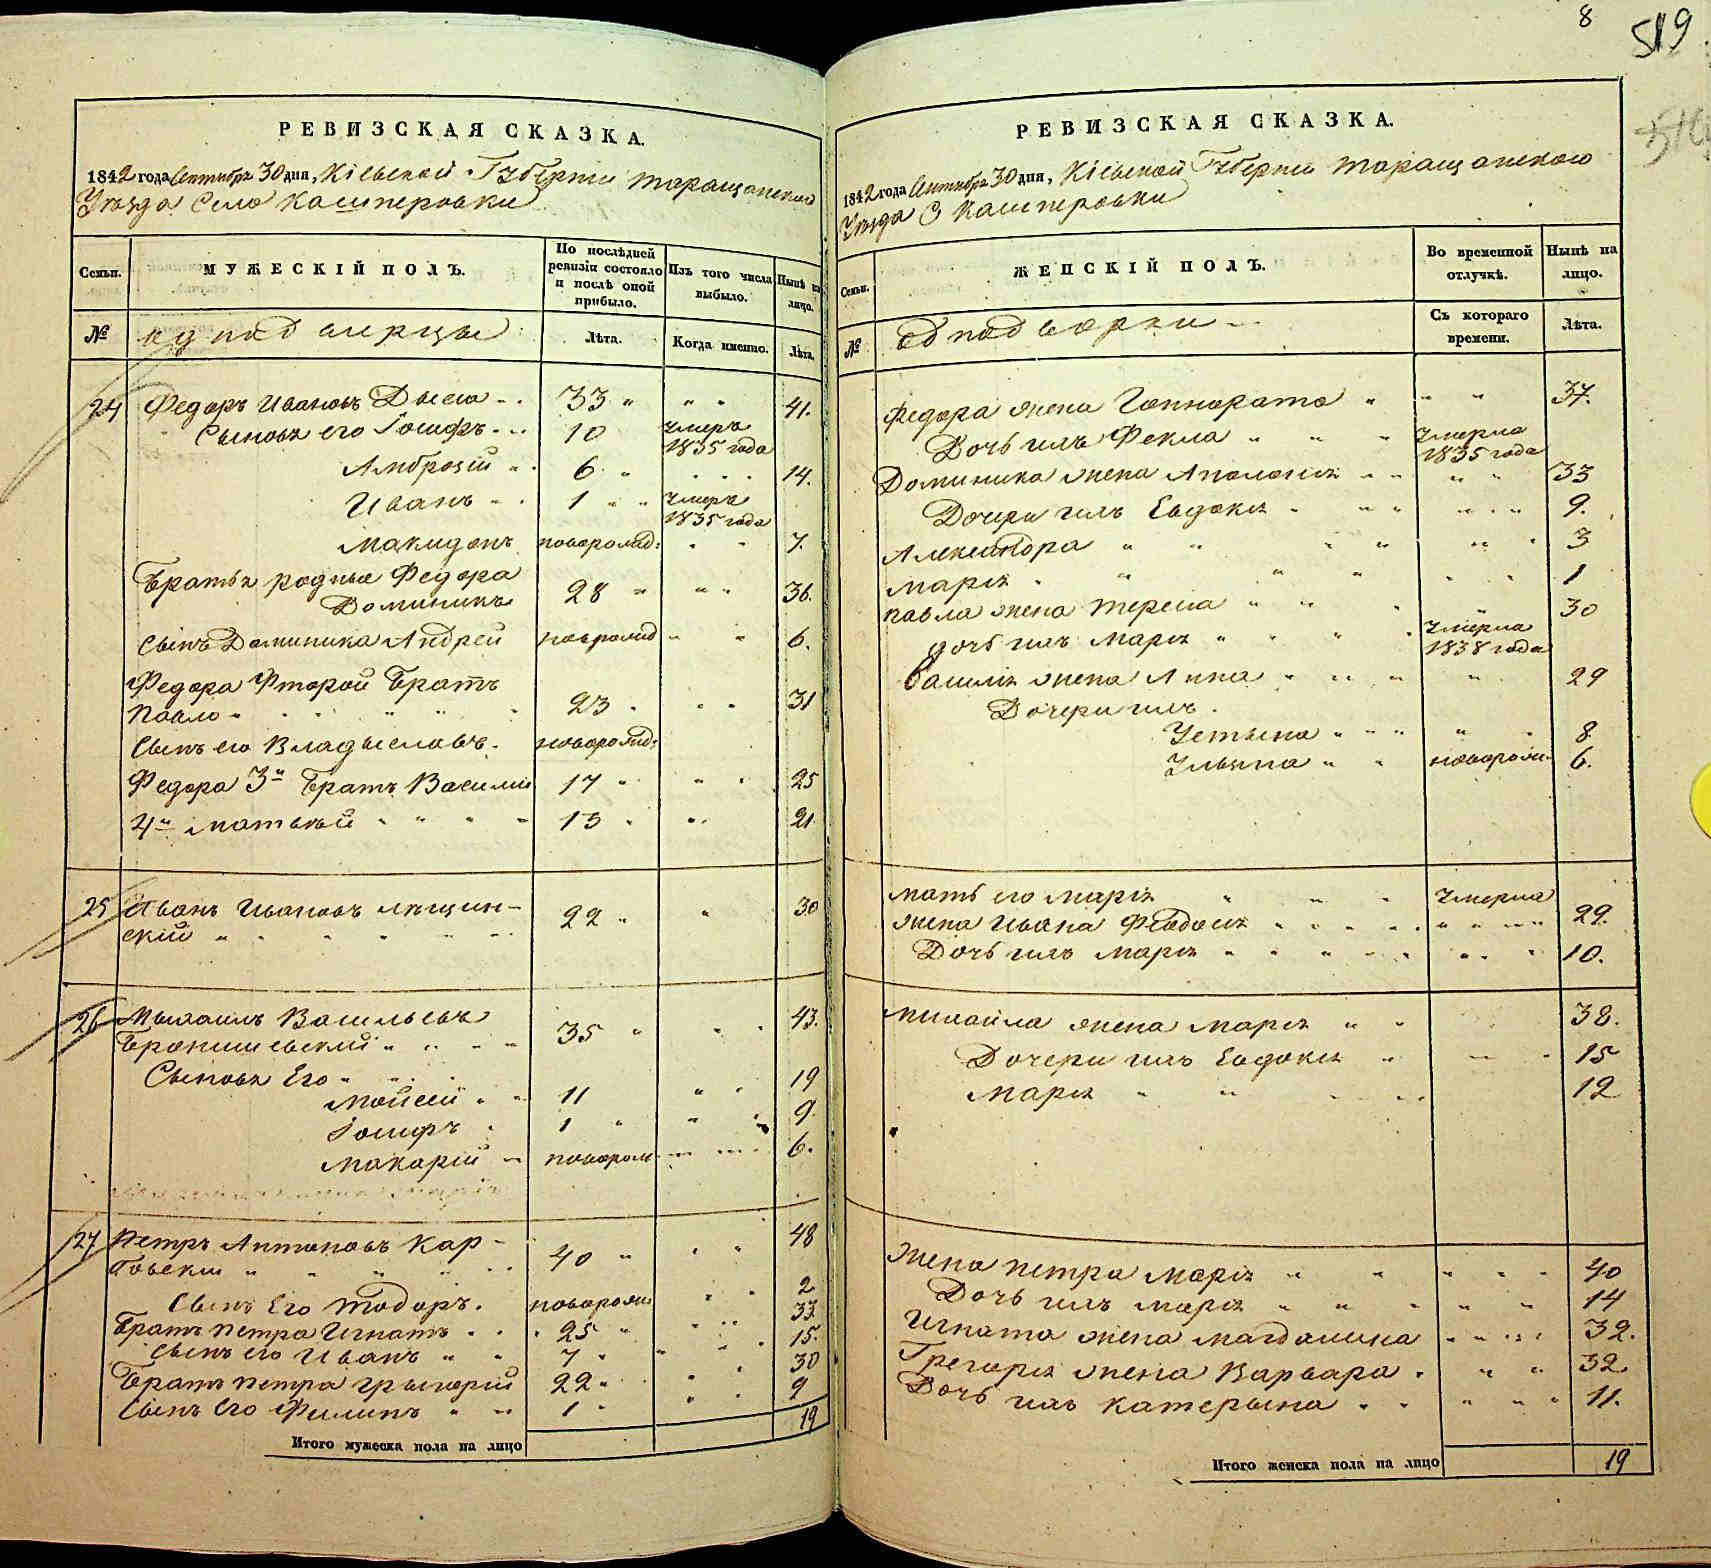 8
519
516
РЕВИЗСКАЯ СКАЗКА.
1842 года Сентября 30 дня, Кіевской Губерніи Таращанского
Уезда Село Кашперовки
Семьи.
МУЖЕСКІЙ ПОЛЪ.
По послѣдней ревизіи состояло и послѣ оной прибыло.
Изъ того числа выбыло.
Нынѣ на лицо.
№
Лѣта.
Когда именно.
Лѣта.
24 Федоръ Ивановъ 33 41.
Сыновья его Іосифъ 10 Умеръ 1835 года
Амброзій 6 14.
Иванъ 1 Умеръ 1835 года
новорожд: 7.
Братья родные Федора
Доминикъ 28 36.
Сынъ Доминика Андрей новорожд 6.
Федора Фторой Братъ
Павло 23 31
Сынъ его Владыславъ новорожд:
Федора 3й Братъ Василий 17 25
4й Матвѣй 13 21
25 Иванъ Ивановъ Лещин-
ский 22 30
26 Мыхаилъ Васильевъ
35 43.
Сыновья Его
Мойсей 11 19
Іосифъ 1 9.
Макарій новорож 6.
27 Петръ Антоновъ Кар-
повский 40 48
Сынъ Его Тодоръ. новорож 2
Братъ Петра Игнатъ 25 33.
Сынъ его Иванъ 7 15.
Братъ Петра Грыгорий 22 30
Сынъ Его Филипъ 1 9
Итого мужеска пола на лицо 19
РЕВИЗСКАЯ СКАЗКА.
1842 года Сентября 30 дня, Кіевской Губерніи Таращанского
Уезда С Кашперовки
Семьи.
ЖЕНСКІЙ ПОЛЪ.
Во временной отлучкѣ.
Нынѣ на лицо.
№
Съ котораго времени.
Лѣта.
Федора жена Гоннората 37.
Дочь ихъ Фекла Умерла 1835 года
Доминика жена Аполонія 33
Дочери ихъ Евдокія 9.
Александра 3
Марія 1
Павла жена Тереса 30
дочь ихъ Марія Умерла 1838 года
Василія жена Анна 29
Дочери ихъ.
Устына 8
Ульяна новорож. 6.
Мать его Марія Умерла
жена Ивана Феодосія 29.
Дочь ихъ Марія 10.
Михайла жена Марія 38.
Дочери ихъ Евдокія 15
Марія 12
Жена Петра Марія 40
Дочь ихъ Марія 14
Игната жена Магдалина 32.
Грегорія жена Варвара 32.
Дочь ихъ Катерына 11.
Итого женска пола на лицо 19